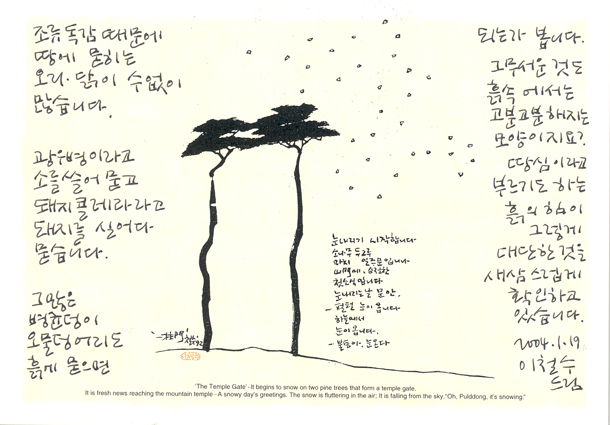 조류독감 때문에
땅에 묻히는
오리·닭이 수없이
많습니다.
광우병이라고
소를 쓸어 묻고
돼지콜레라라고
돼지를 실어다
묻습니다.
그 많은
병균덩이
오물덩어리도
흙에 묻으면
되는가 봅니다.
그 무서운 것도
흙속에서는
고분고분해지는
모양이지요?
땅심이라고
부르기도 하는
흙의 힘이
그렇게
대단한 것을
새삼스럽게
확인하고
있습니다.
2004.1.19
이철수
드림
눈 내리기 시작합니다
소나무 두 그루
마치 일주문입니다
산소식입니다
눈 내리는 날 문안.
- 펄펄 눈이 옵니다
하늘에서
눈이 옵니다.
- 불퉁아. 눈온다
'The Temple Gate' - It begins to snow on two pine trees that form a temple gate.
It is fresh news reaching the mountain temple - A snowy day's greetings. The snow is fluttering in the air; It is falling from the sky. "Oh, Pulddong, it's snowing."